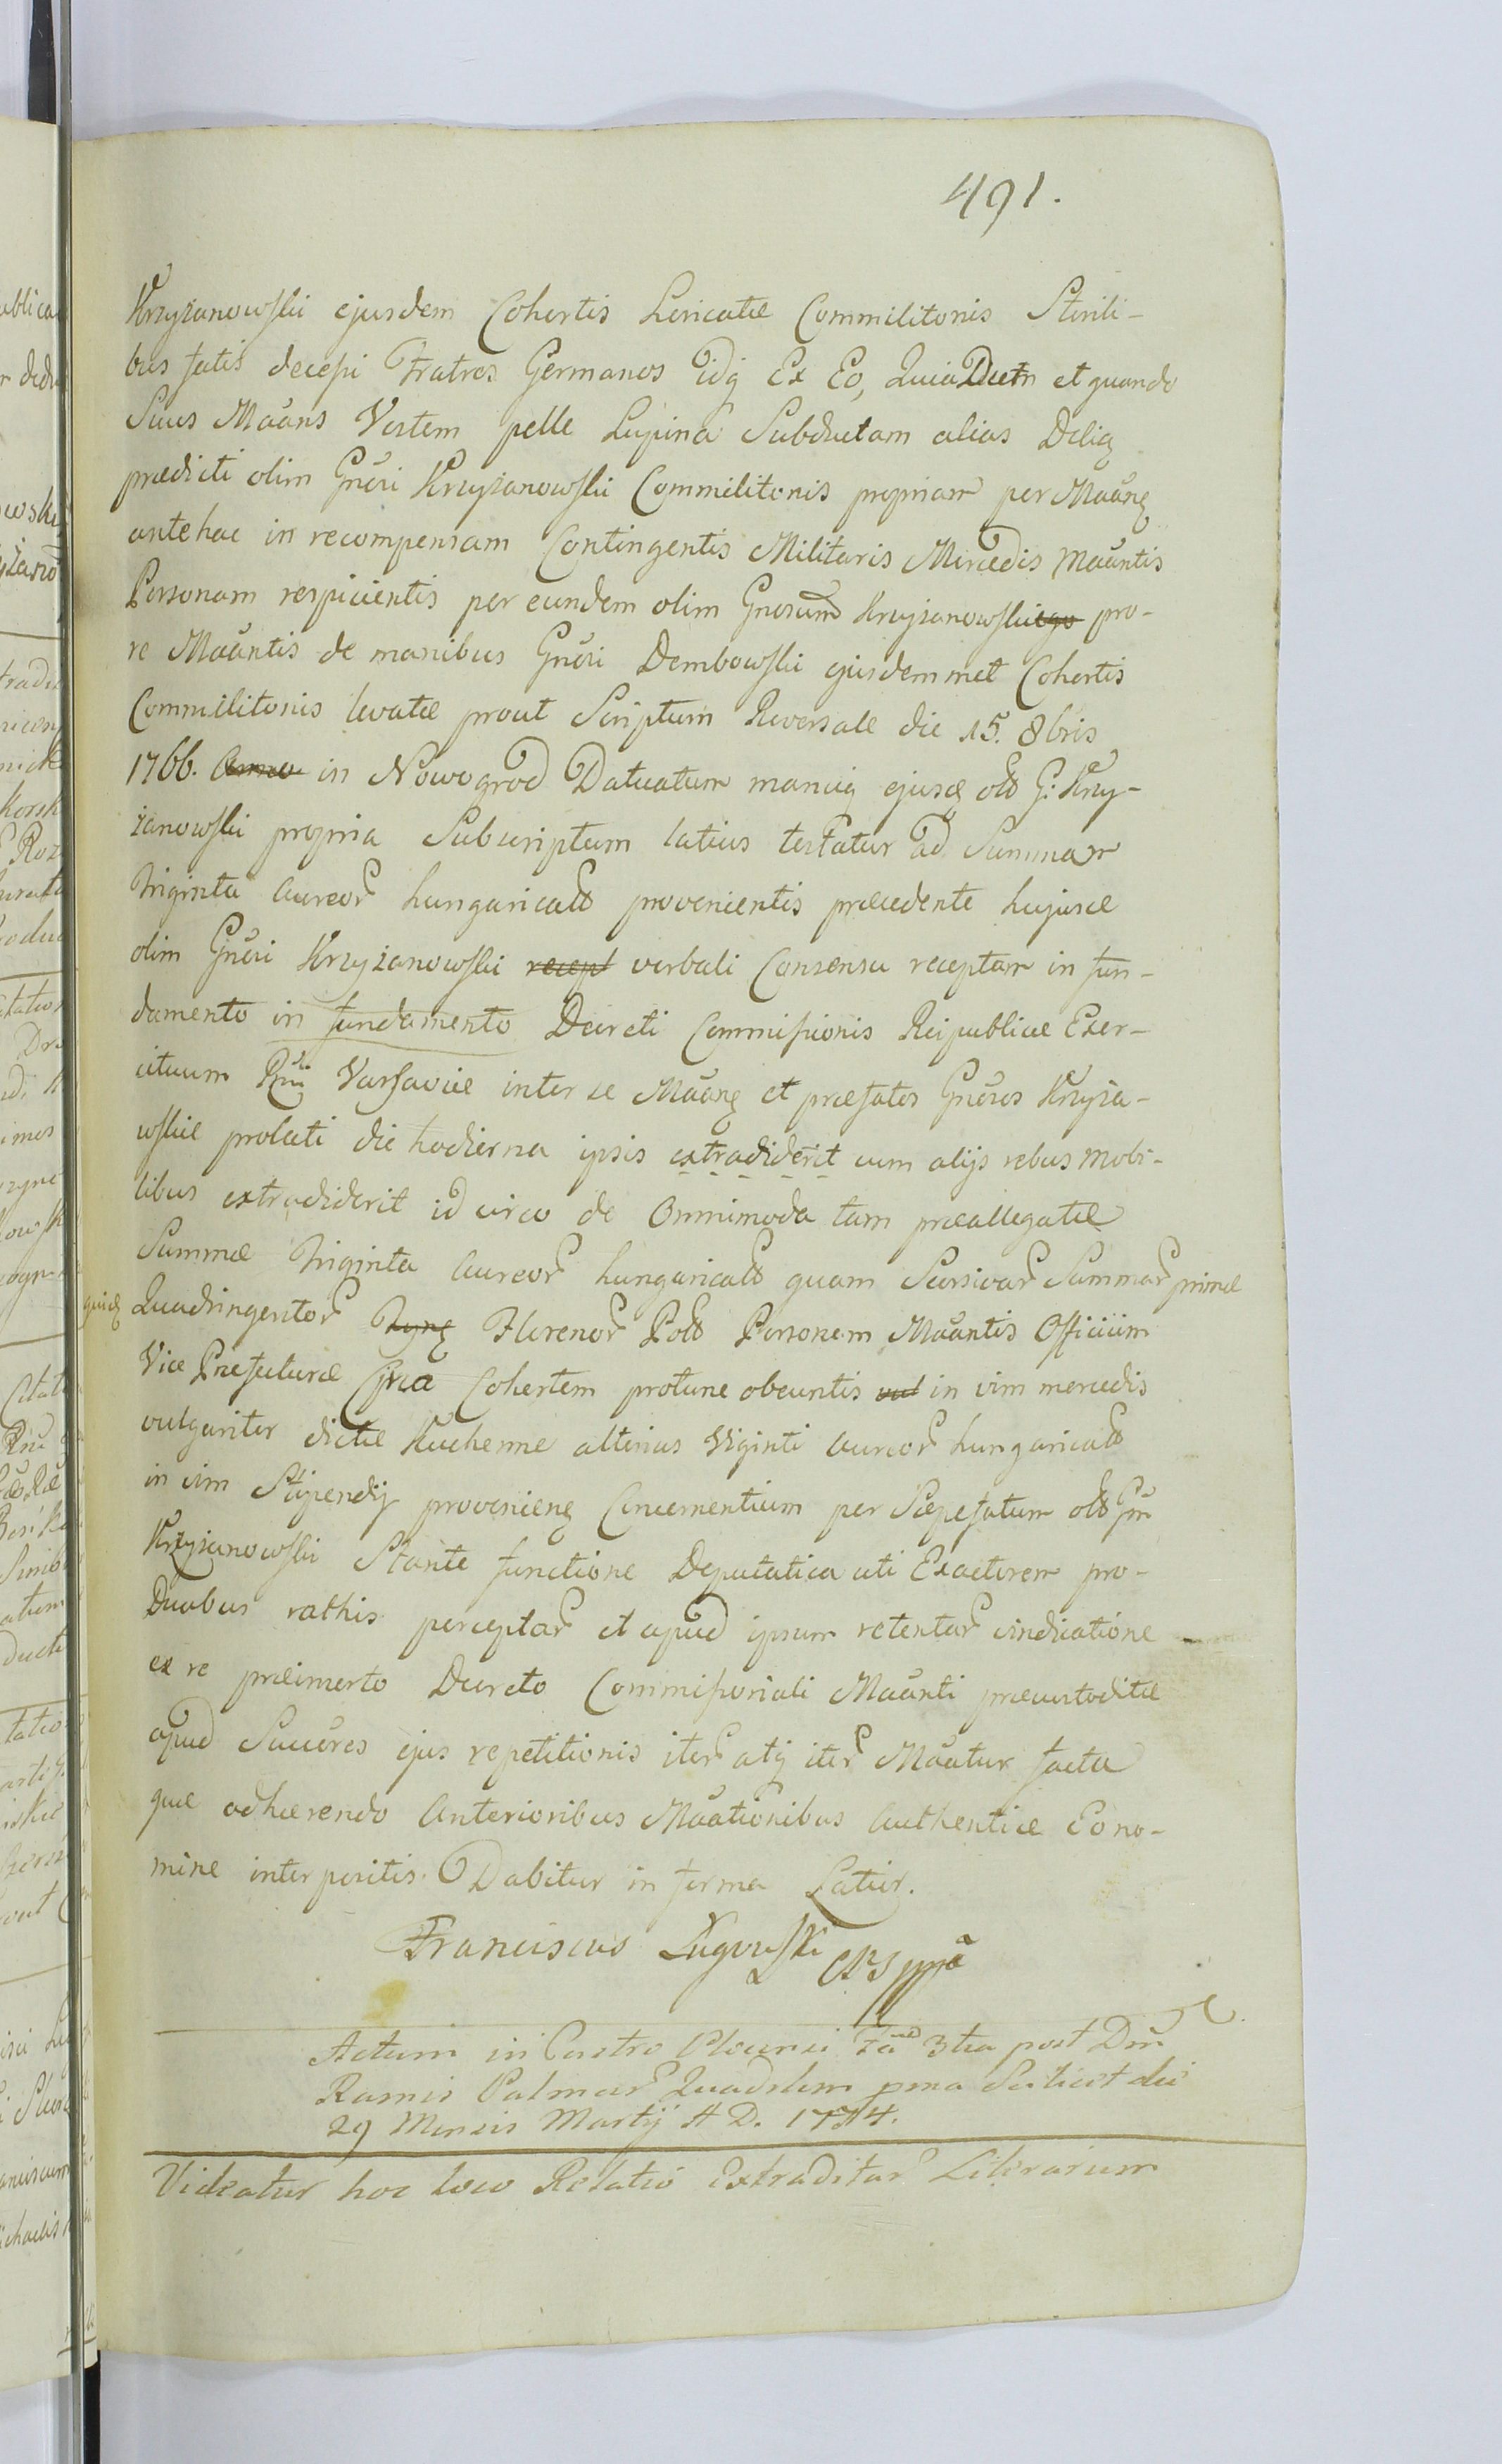 491.
Krzyżanowskii ejusdem Cohortis Loricatæ Commilitonis Sterili-
bus fatis decessi Fratres Germanos idq Ex Eo, Quia et quando
Suus Maans Vestem pelle Lupina Subductam alias Delią
prædicti olim Gnosi Krzyżanowskii Commilitonis propriam per Maang
antehac in recompensam Contingentis Militaris Mercedis Maantis
Personam respicientis per eundem olim Gnosum Krzyżanowskiego pro-
re Maantis de manibus Gnosi Dembowskii ejusdemmet Cohortis
Commilitonis levatæ prout Scriptum Reversale die 15. 8bris
1766. Anno in Nowogrod Datuatum manuq ejusq olt G: Krzy-
żanowskii propria Subscriptum latius testatur ad Summam
Triginta Aureor hungaricalt provenientis præcedente hujusce
olim Gnosi Krzyżanowskii recept verbali Consensu receptam in fun-
damento in fundamento Decreti Commissionis Reipublicæ Exer-
cituum Varsaviæ inter se Maang et præfatos Gnosos Krzyża-
wskie prolati die hodierna ipsis extradiderit cum alijs rebus mobi-
libus extradiderit id circo de Omnimoda tam præallegatæ
Summæ Triginta Aureor hungaricalt quam Seorsivar Summar primæ
quidę Quadringentor Florenor Polt Personam Maantis Officium
Vice Præfecturæ Circa Cohortem protunc obeuntis vul in vim mercedis
vulgariter dictæ Kuchenne alterius Viginti Aureor hungaricalt
in vim Stipendij provenieng Concernentium per Sæpefatum olt Gm
Krzyżanowskii Stante functione Deputatica uti Exactorem pro-
Duabus rathis perceptar et apud ipsum retentar vindicatione
ex re præinserto Decreto Commissoriali Maanti præcustoditæ
apud Succores ejus repetitionis iter atq iter Maatur facta
quæ adhærendo Anterioribus Maationibus Authentice Eo no-
mine interpositis. Dabitur in forma Latior.
Franciscus Ługowski mppa
Actum in Castro Plocensi Fa 3tia post Dm
Ramis Palmar Quadrlem pma Scilicet die
29 Mensis Martij A D. 1774.
Videatur hoc loco Relatio Extraditar Literarum